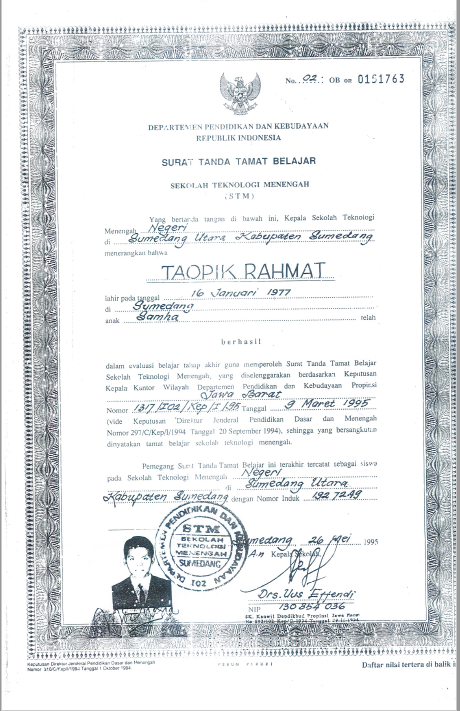 No. 02 : OB on 0151763
DEPARTEMEN PENDIDIKAN DAN KEBUDAYAAN
REPUBLIK INDONESIA
SURAT TANDA TAMAT BELAJAR
SEKOLAH TEKNOLOGI MENENGAH
(STM)
Yang bertanda tangan di bawah ini, Kepala Sekolah Teknologi
Menengah Negeri
di Sumedang Utara Kabupaten Sumedang
menerangkan bahwa
TAOPIK RAHMAT
lahir pada tanggal 16 Januari 1977
di Sumedang
anak Samha telah
berhasil
dalam evaluasi belajar tahap akhir guna memperoleh Surat Tanda Tamat Belajar
Sekolah Teknologi Menengah, yang diselenggarakan berdasarkan Keputusan
Kepala Kantor Wilayah Departemen Pendidikan dan Kebudayaan Propinsi
Jawa Barat
Nomor 1317/I02/Kep/I/1995 Tanggal 9 Maret 1995
(vide Keputusan Direktur Jenderal Pendidikan Dasar dan Menengah
Nomor 297/C/Kep/I/1994 Tanggal 20 September 1994), sehingga yang bersangkutan
dinyatakan tamat belajar sekolah teknologi menengah.
Pemegang Surat Tanda Tamat Belajar ini terakhir tercatat sebagai siswa
pada Sekolah Teknologi Menengah Negeri
di Sumedang Utara
Kabupaten Sumedang dengan Nomor Induk 192 7249
DEPARTEMEN PENDIDIKAN DAN KEBUDAYAAN
STM
SEKOLAH
TEKNOLOGI
MENENGAH
SUMEDANG
I02
Sumedang 26 Mei 1995
An Kepala Sekolah
Drs. Uus Effendi
NIP 130 354 036
Keputusan Direktur Jenderal Pendidikan Dasar dan Menengah
Nomor 318/C/Kep/I/1994 Tanggal 1 Oktober 1994
Daftar nilai tertera di balik